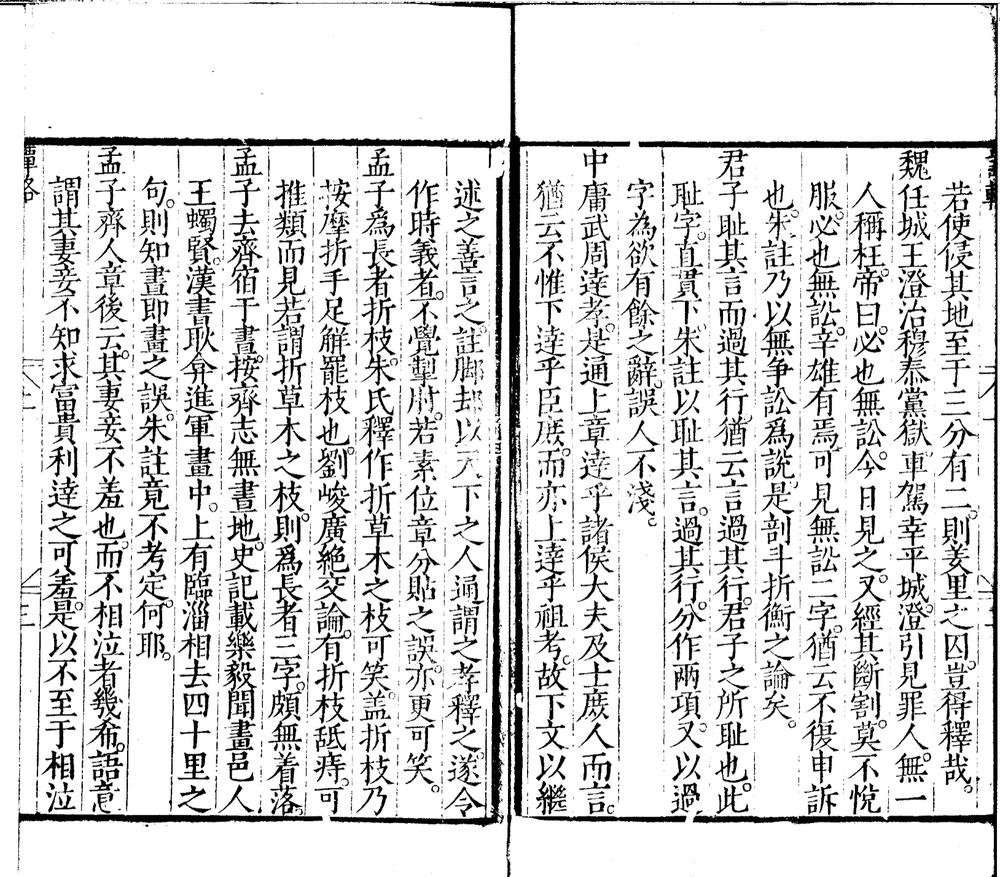 若使侵其地至于三分有二。則羑里之囚。豈得釋哉。
魏任城王澄治穆泰黨獄。車駕幸平城。澄引見罪人。無一
人稱枉。帝曰。必也無訟。今日見之。又經其斷割。莫不悅
服。必也無訟。辛雄有焉。可見無訟二字。猶云不復申訴
也。朱註乃以無争訟爲說。是剖斗折衡之論矣。
君子耻其言而過其行。猶云言過其行。君子之所耻也。此
耻字。直貫下。朱註以耻其言。過其行。分作兩項。又以過
字為欲有餘之辭。誤人不淺。
中庸武周達孝。是通上章達乎諸侯大夫及士庶人而言。
猶云不惟下達乎臣庶。而亦上達乎祖考。故下文以繼
述之善言之。註脚却以天下之人通謂之孝釋之。遂令
作時義者。不覺掣肘。若素位章分貼之誤。亦更可笑。
孟子爲長者折枝。朱氏釋作折草木之枝可笑。盖折枝乃
按摩折手足解罷枝也。劉峻廣絶交論。有折枝舐痔。可
推類而見若謂折草木之枝。則爲長者三字。頗無着落。
孟子去齊宿于晝。按齊志無晝地。史記載樂毅聞畫邑人
王蠋賢。漢書耿弇進軍畫中。上有臨淄相去四十里之
句。則知晝即畫之誤。朱註竟不考定。何耶。
孟子齊人章後云。其妻妾不羞也。而不相泣者幾希。語意
謂其妻妾不知求富貴利達之可羞。是以不至于相泣